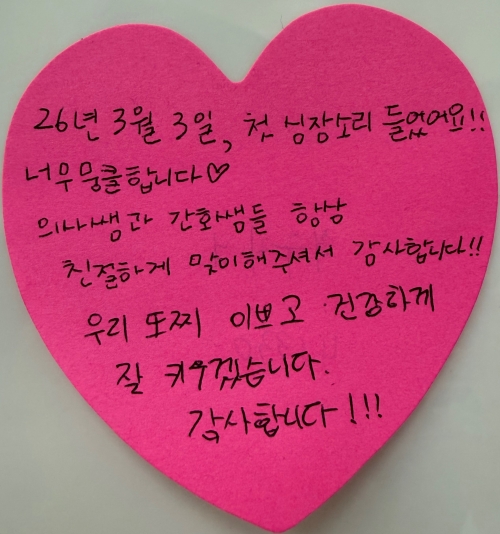 26년 3월 3일, 첫 심장소리 들었어요!!
너무 뭉클합니다♡
의사쌤과 간호쌤들 항상
친절하게 맞이해주셔서 감사합니다!!
우리 또찌 이쁘고 건강하게
잘 키우겠습니다.
감사합니다!!!